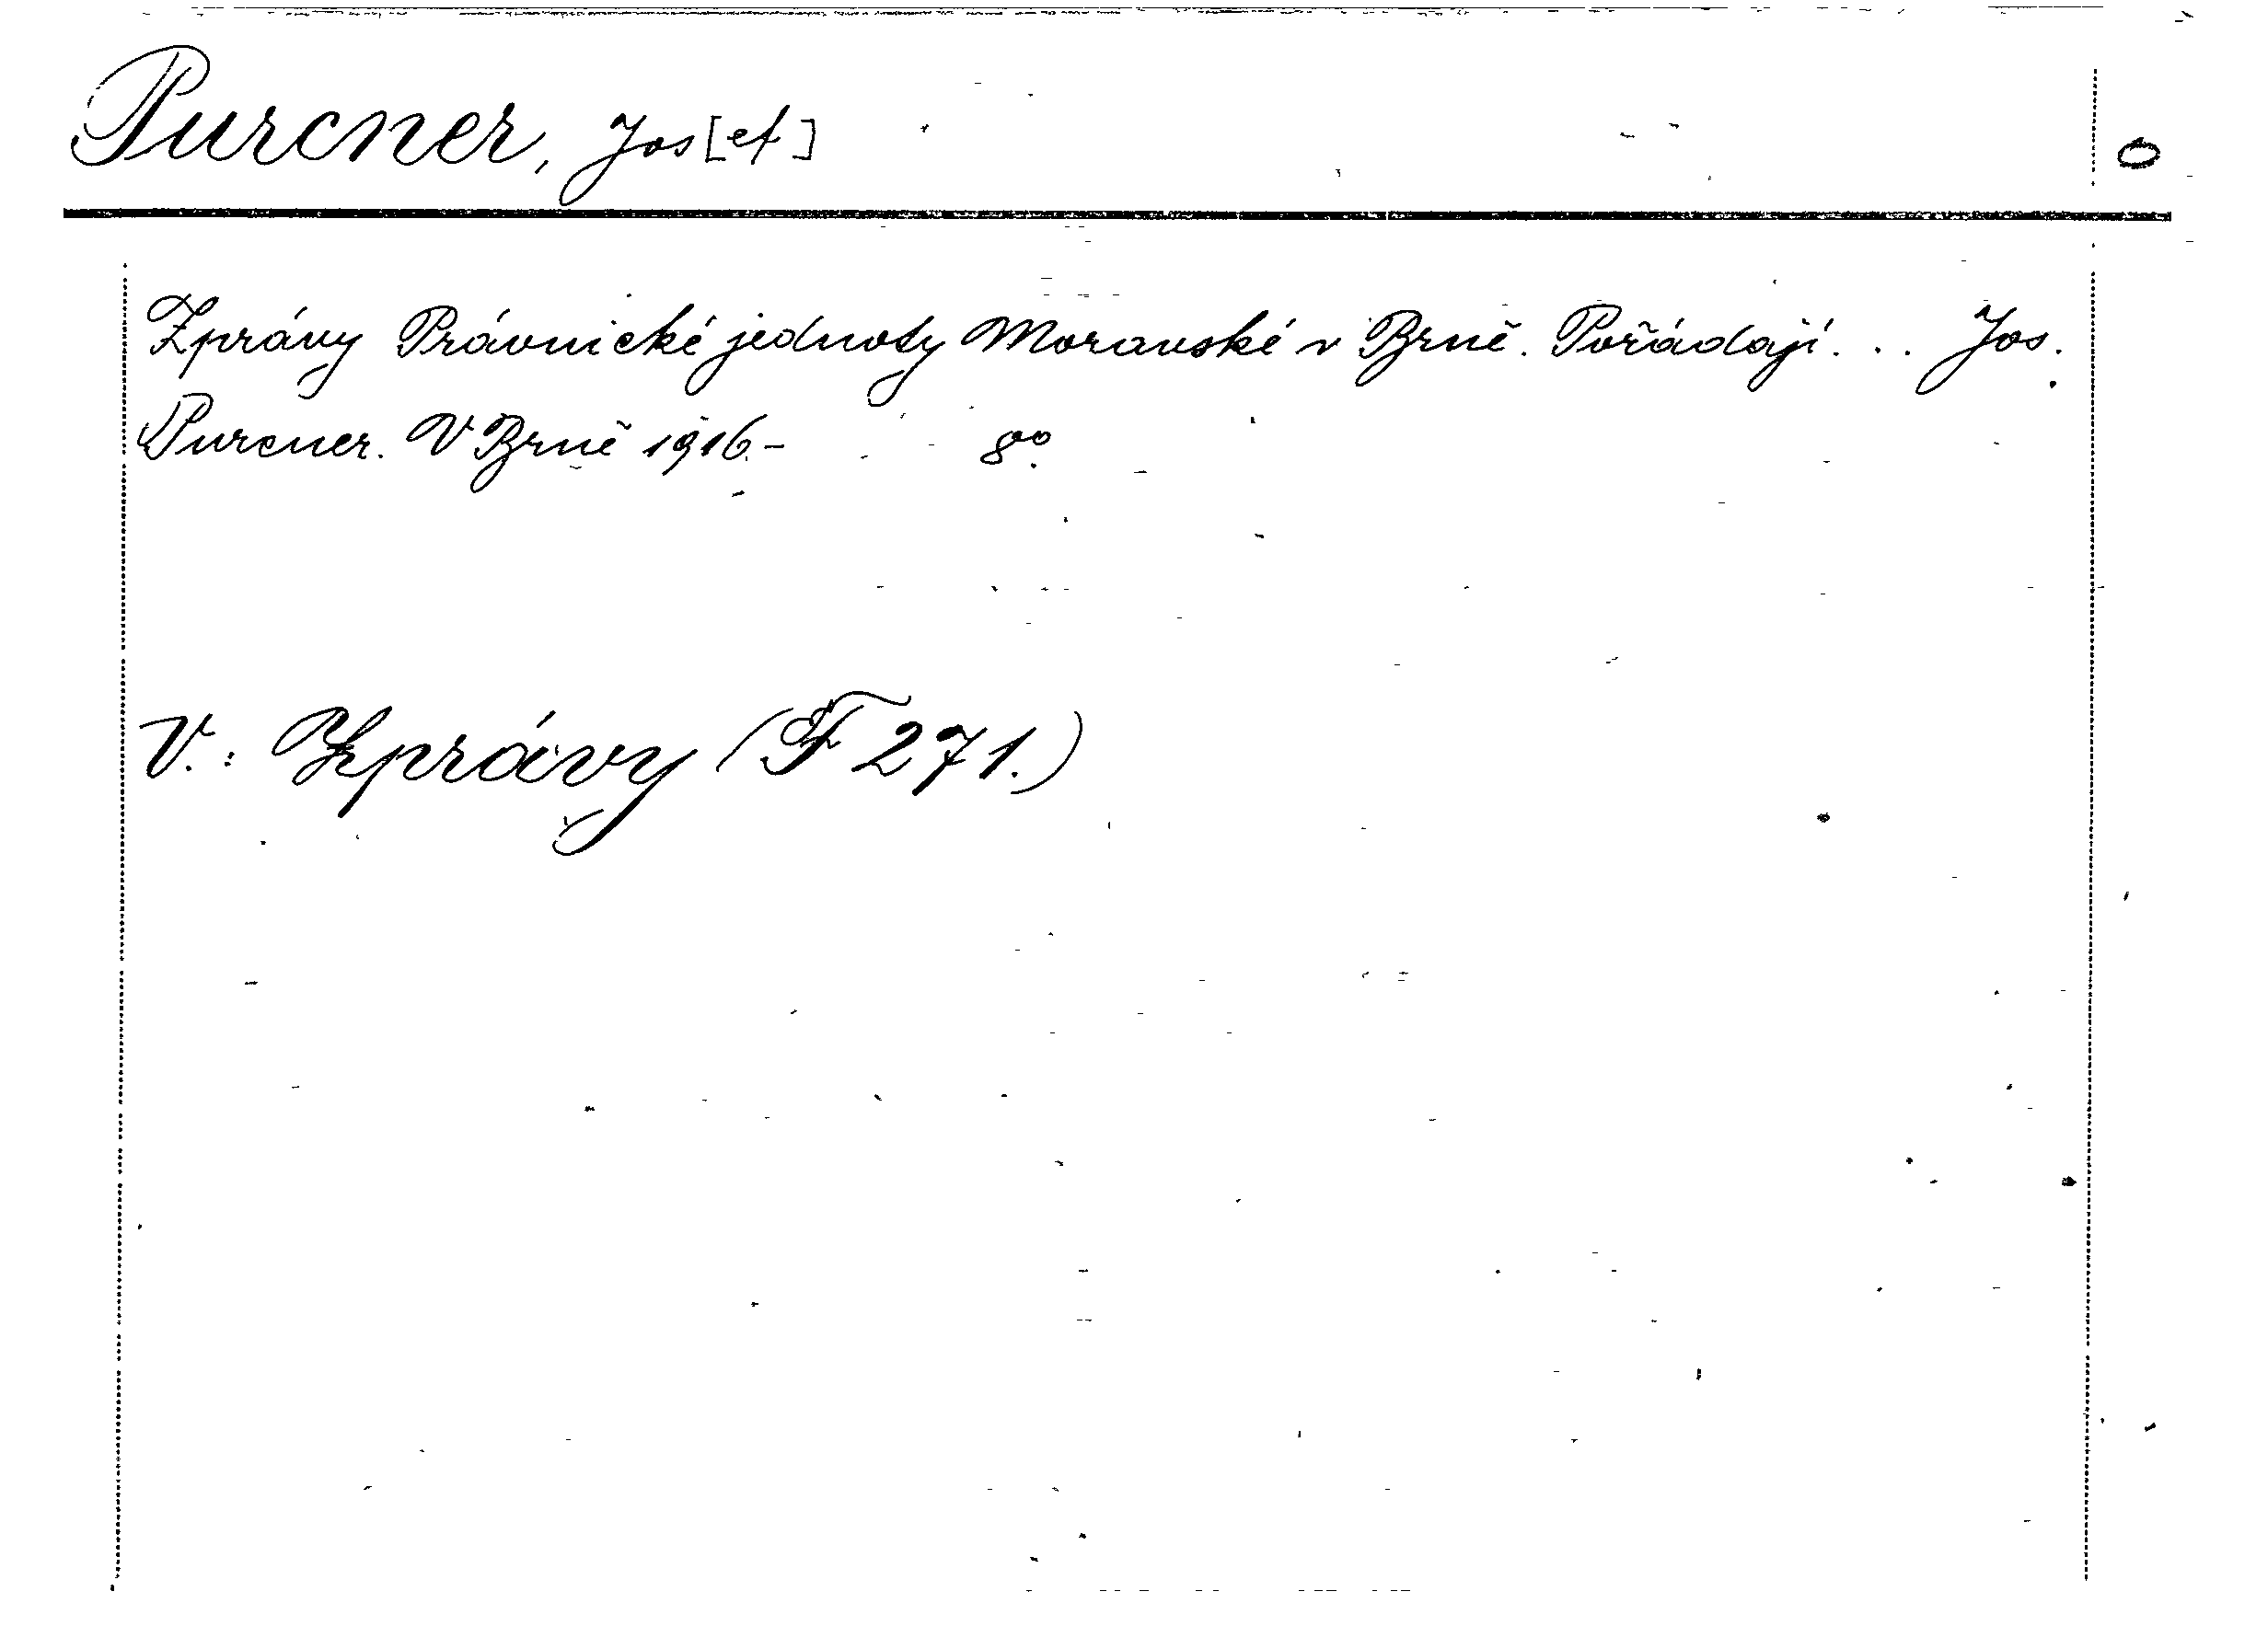 Purcner, Jos[ef] 0
Zprávy Právnické jednoty Moravské v Brně. Pořádají... Jos.
Purcner. V Brně 1916.- 8°.
V.: Zprávy (F 271.)